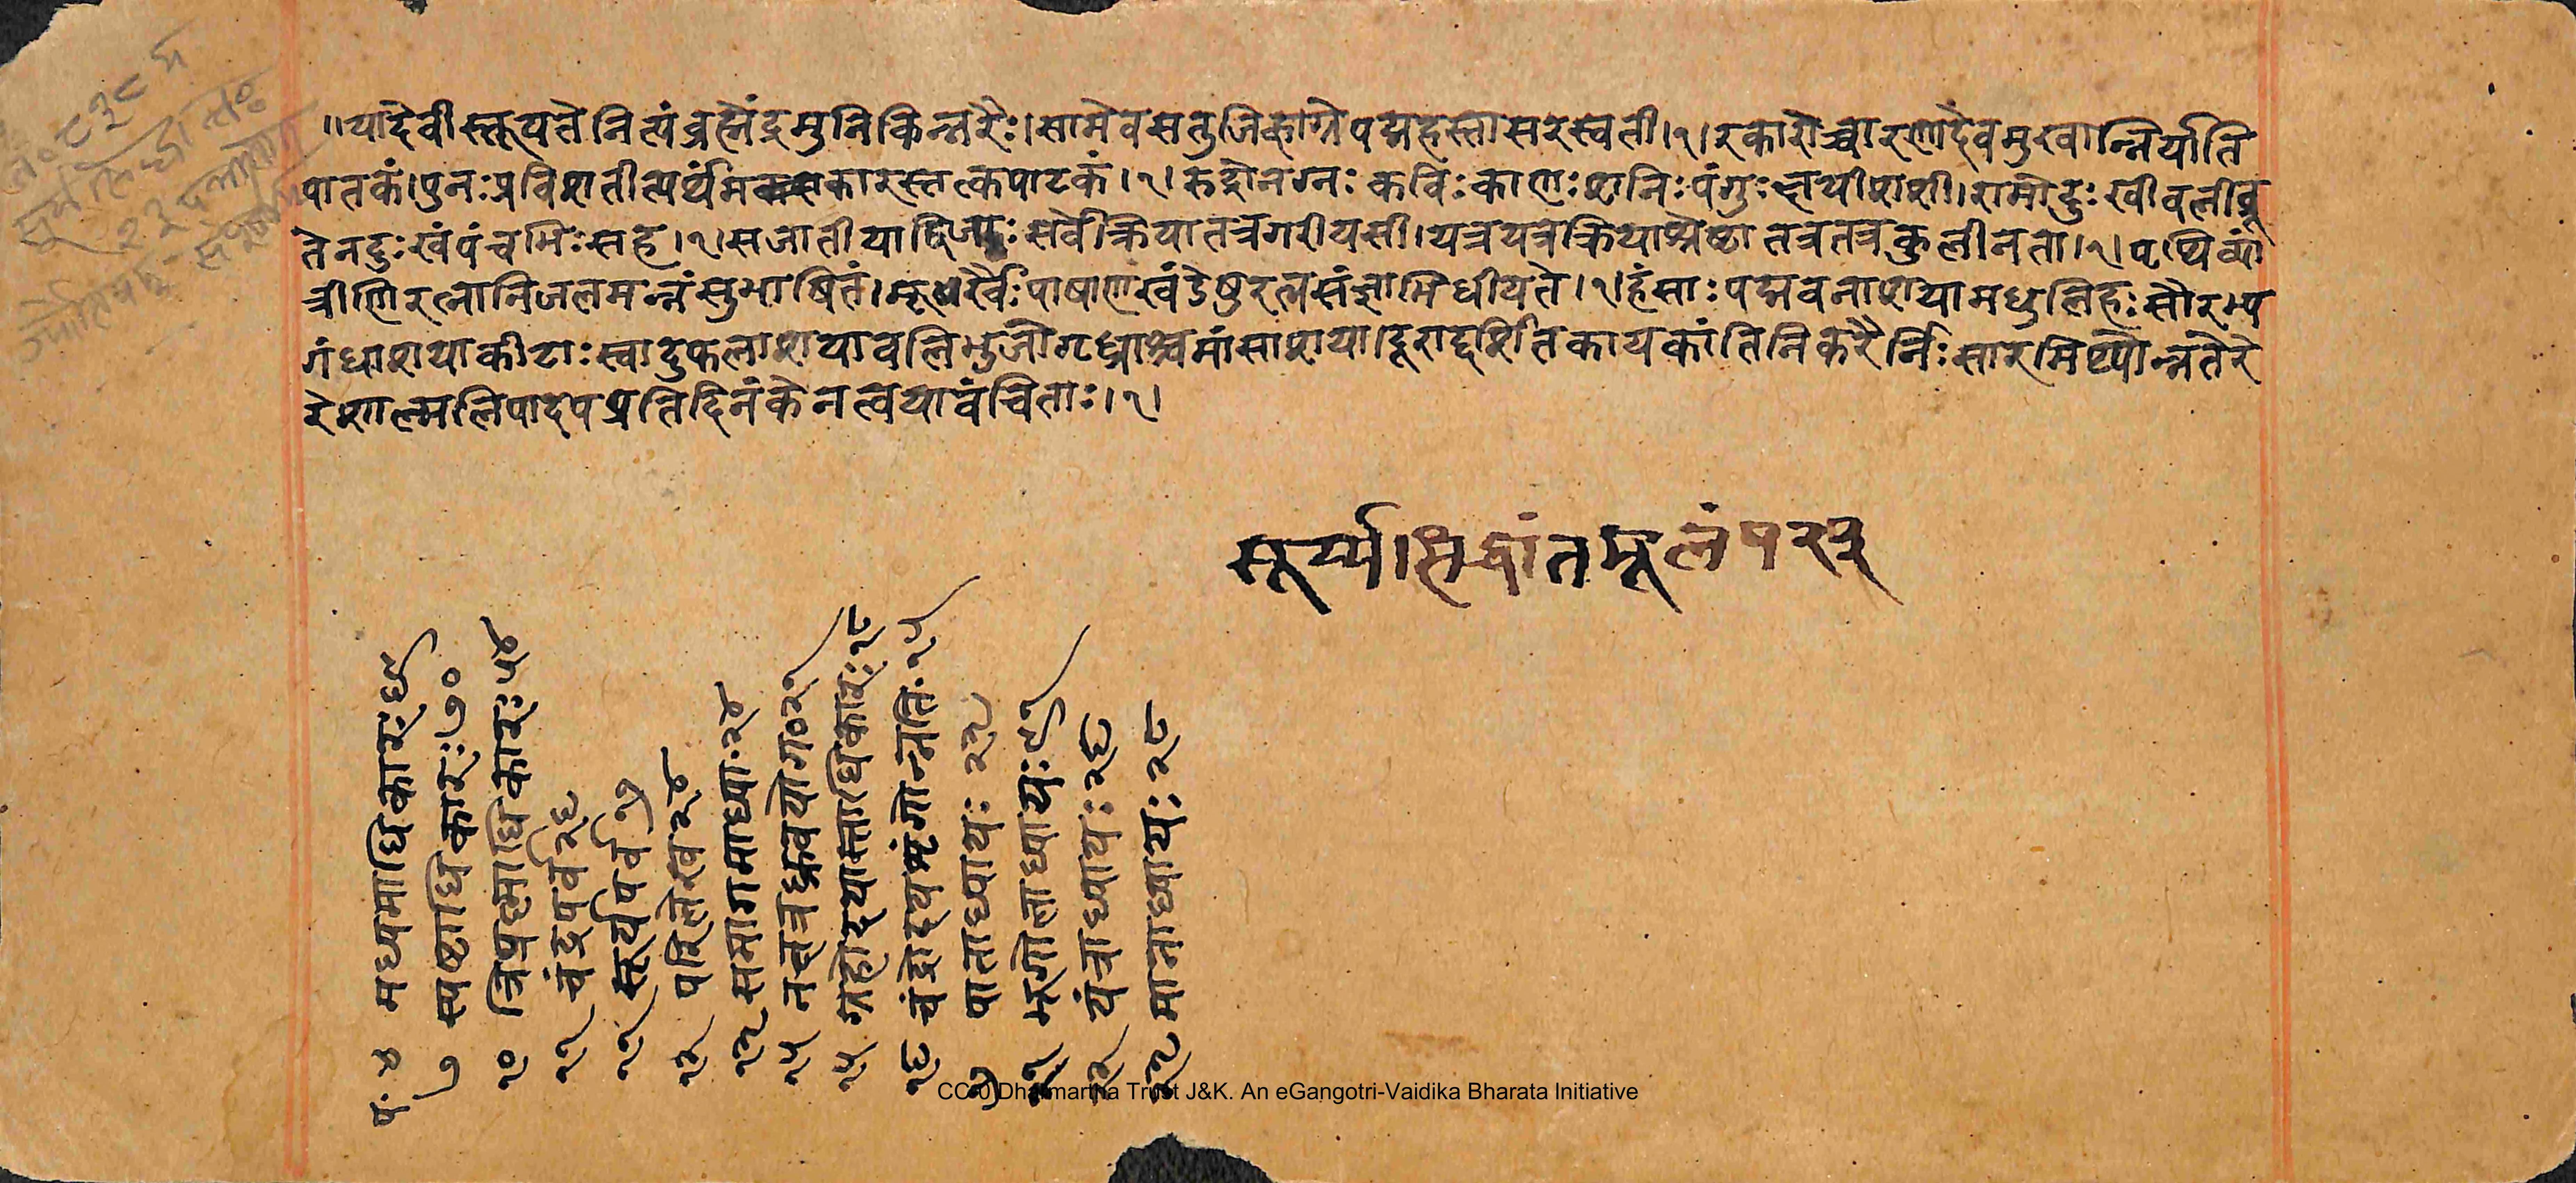 ॥यादेवीस्तूयतेनित्यंब्रह्मेंद्रमुनिकिन्नरैः।सामेवसतुजिह्वाग्रेपद्महस्तासरस्वती।१।रकारोच्चारणादेवमुखान्निर्याति
पातकं।पुनःप्रविशतीत्यर्थंमकारस्तत्कपाटकं।१।रुद्रोनग्नः कविःकाणःशनिःपंगुःक्षयीशशी।रामोदुःखीवलीब्रू
तेनदुःखंपंचभिःसह।१।सजातीया सर्वेक्रियातत्रगरीयसी।यत्रयत्रक्रियाश्रेष्ठातत्रतत्रकुलीनता।१।पृथिव्यां
त्रीणिरत्नानिजलमन्नंसुभाषितं।मूढैःपाषाणखंडेषुरत्नसंज्ञाभिधीयते।१।हंसाःपद्मवनाशयामधुलिहःसौरभ्य
गंधाशयाकीटाःस्वादुफलाशयावलिभुजोगृध्राश्चमांसाशया।दूराद्दृष्टिकायकांतिनिकरैर्निःसारमिथ्योन्नतेरे
रेशाल्मलिपादपप्रतिदिनंकेनत्वयावंचिताः।१।
सूर्य्यसिद्धांतमूलंपत्र२३
नं॰ ८३८ म
सूर्यसिद्धांतः
२३ पत्राणि
ज्योतिषम्-संपूर्णम्
प॰ ४ मध्यमाधिकारः६९
७ स्पष्टाधिकारः७०
१० त्रिप्रश्नाधिकारः५४
११ चंद्रपर्व२६
१२ सूर्यपर्व१७
१३ परिलेख२४
१३ समागमाध्या॰२४
१५ नक्षत्रध्रुवयोग॰२१
१५ ग्रहोदयास्ताधिकारः१८
१६ चंद्रोदयशृंगोन्नति॰१५
पाताध्यायः २३
२१ भूगोलाध्यायः९१
२२ यंत्राध्यायः२६
२३ मानाध्यायः२८
CC-0 Dharmartha Trust J&K. An eGangotri-Vaidika Bharata Initiative